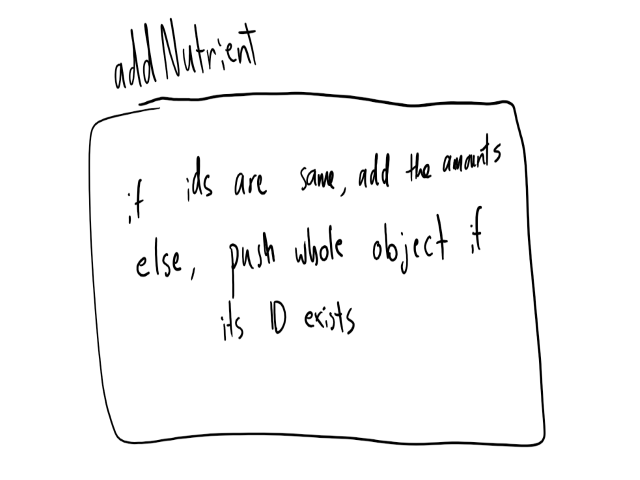 addNutrient
if ids are same, add the amounts
else, push whole object if
its ID exists